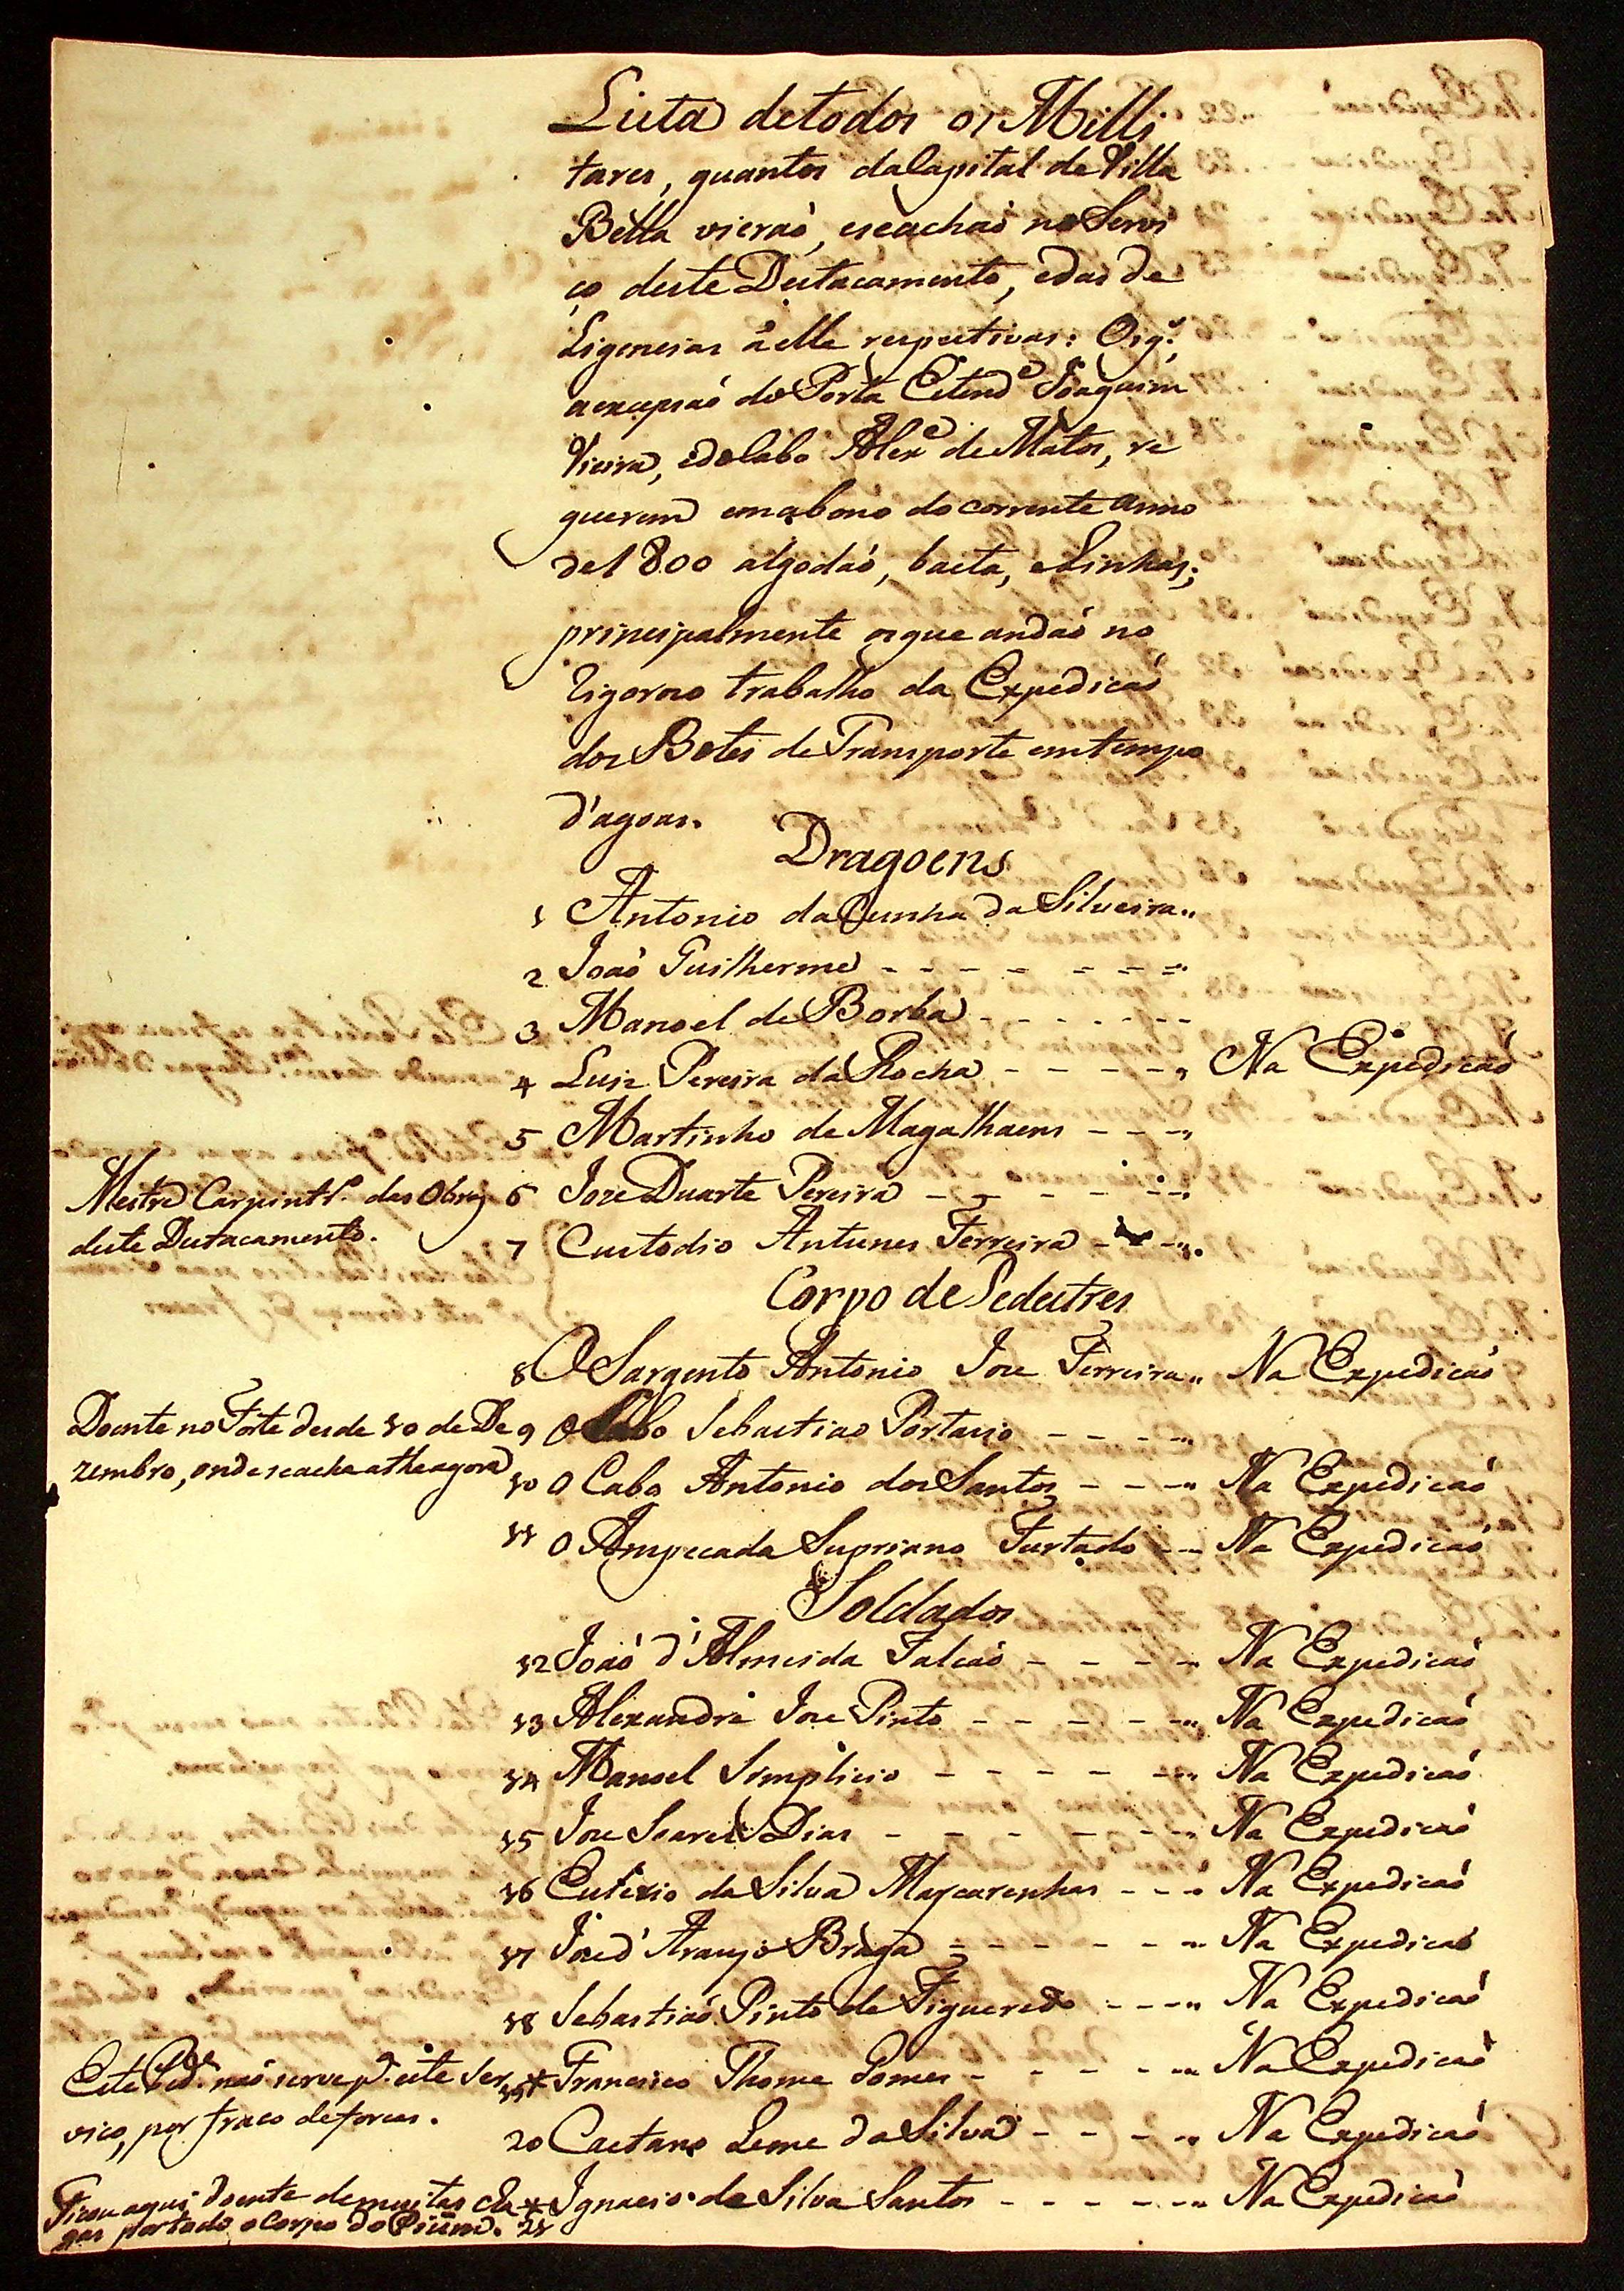 Lista detodos os Milli
tares, quantos daCapital de Villa
Bella vieraõ, eseachaõ no Servi
ço deste Destacamento, edas de
ligencias á elle respectivas: Os q.^s
aexcepsaõ do Porta Estend.^e Joaquim
Vieira, edoCabo Alex.^e de Matos, re
querem emabono do corrente anno
de1800 algodaõ, baeta, eLinhas;
principalmente osque andaõ no
rigoroso trabalho da Expedicaõ
dos Botes de Transporte emtempo
d'agoas.
Dragoens
1 Antonio daCunha da Silveira..
2 Joaõ Guilherme - - - - - - - -
3 Manoel de Borba - - - - - - -
4 Luiz Pereira da Rocha - - - - - " Na Expedicaõ
5 Martinho de Magalhaens - - - "
Mestre Carpintr.^o das Obras
deste Destacamento.
6 Joze Duarte Pereira - - - - - -
7 Custodio Antunes Ferreira - - -
Corpo de Pedestres
8 O Sargento Antonio Joze Ferreira.. Na Expedicaõ
Doente no Forte desde 10 de De
zembro, ondeseacha atheagora
9 O Cabo Sebastiao Portacio - - - -
10 O Cabo Antonio dos Santos - - - " Na Expedicaõ
11 O Anspecada Supriano Furtado - - Na Expedicaõ
Soldados
12 Joaõ d'Almeida Falcaõ - - - - " Na Expedicaõ
13 Alexandre Joze Pinto - - - - - " Na Expedicaõ
14 Manoel Simplicio - - - - - " Na Expedicaõ
15 Joze Soares Dias - - - - - - " Na Expedicaõ
16 Eutexio da Silva Mascarenhas - - - Na Expedicaõ
17 Joze d'Araujo Braga - - - - - - " Na Expedicaõ
18 Sebastiaõ Pinto de Figueredo - - - " Na Expedicaõ
Este Ped.^e naõ serve p.^a este Ser
vico, por fraco deforcas.
19 * Francisco Thome Gomes - - - - - " Na Expedicaõ
20 Caetano Leme da Silva - - - - " Na Expedicaõ
Ficou aqui doente demuitas cha
gas portodo oCorpo do
* 21 Ignacio da Silva Santos - - - - - " Na Expedicaõ